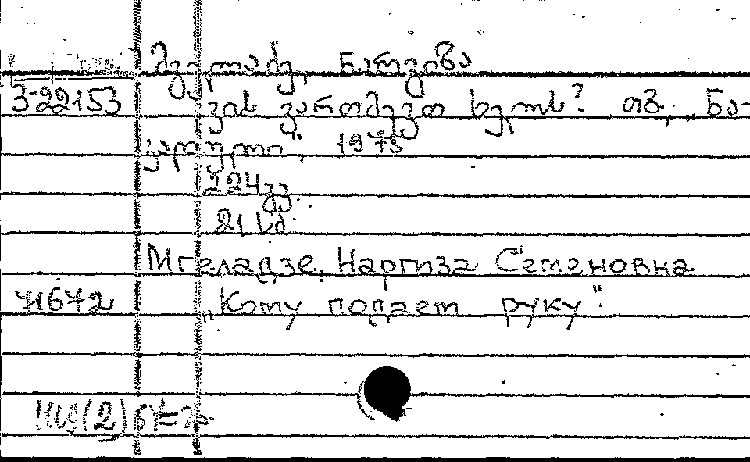 მგელაძე, ნარგიზა
3-22153 ვის ვართმევთ ხელს? თბ., ნა-
კადული, 1975
224 გვ.
21 კპ.
Мгеладзе, Наргиза Семеновна
71672 „Кому подает руку".